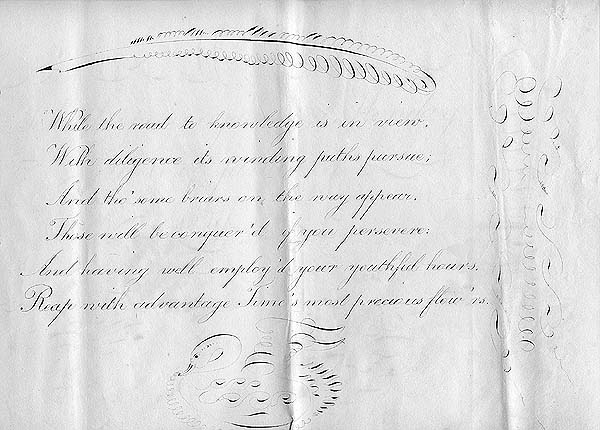 While the road to knowledge is in view,
With diligence its winding paths pursue;
And tho' some briars on the way appear,
These will be conquer'd if you persevere:
And having well employ'd your youthful hours,
Reap with advantage Time's most precious flow'rs.